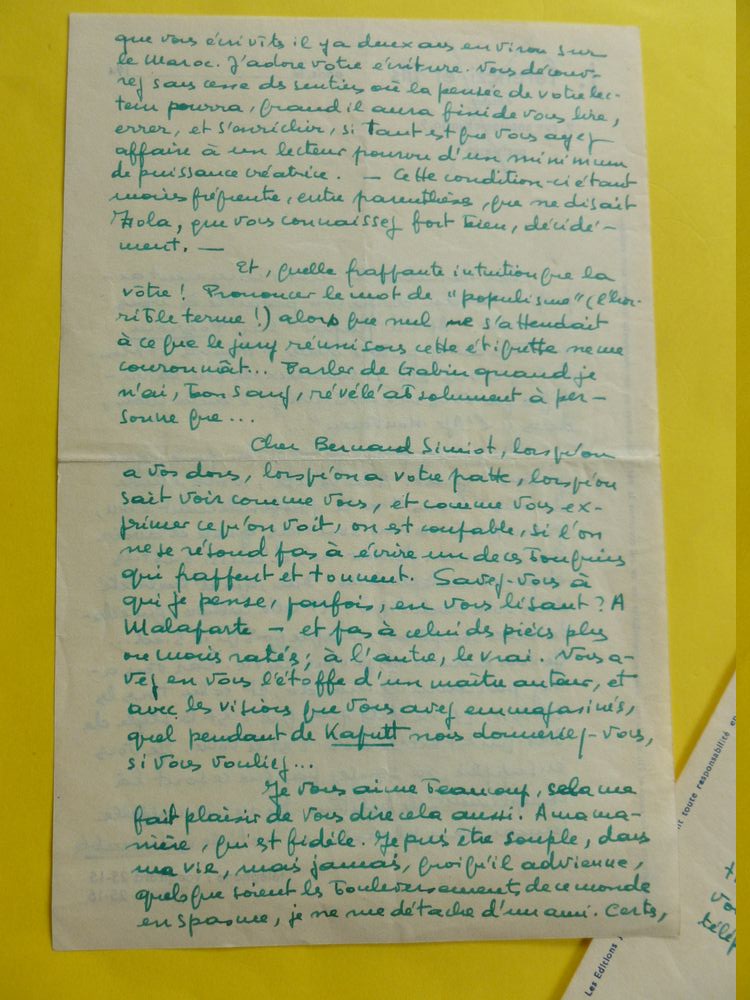 que vous écrivîts il y a deux ans environ sur
le Maroc. J'adore votre écriture. Vous découv-
rez sans cesse des sentiers où la pensée de votre lec-
teur pourra, quand il aura fini de vous lire,
errer, et s'enrichir, si tant est que vous ayez
affaire à un lecteur pourvu d'un minimum
de puissance créatrice. — Cette condition-ci étant
moins fréquente, entre parenthèses, que ne disait
Zola, que vous connaissez fort bien, décidé-
ment. —
Et, quelle frappante intuition que la
vôtre ! Prononcer le mot de "populisme" (l'hor-
rible terme !) alors que nul ne s'attendait
à ce que le jury réuni sous cette étiquette ne me
couronnât... Parler de Gabin quand je
n'ai, bon sang, révélé absolument à per-
sonne que...
Cher Bernard Simiot, lorsqu'on
a vos dons, lorsqu'on a votre patte, lorsqu'on
sait voir comme vous, et comme vous ex-
primer ce qu'on voit, on est coupable, si l'on
ne se résoud pas à écrire un de ces bouquins
qui frappent et tonnent. Savez-vous à
qui je pense, parfois, en vous lisant ? A
Malaparte — et pas à celui des pièces plus
ou moins ratées ; à l'autre, le vrai. Vous a-
vez en vous l'étoffe d'un maître auteur, et
avec les visions que vous avez emmagasinés,
quel pendant de Kaputt nous donneriez-vous,
si vous vouliez...
Je vous aime beaucoup, cela me
fait plaisir de vous dire cela aussi. A ma ma-
nière, qui est fidèle. Je puis être souple, dans
ma vie, mais jamais, quoiqu'il advienne,
quels que soient les bouleversements de ce monde
en spasme, je ne me détache d'un ami. Certes,
nt toute responsabilité en
Les Editions
vo
télép